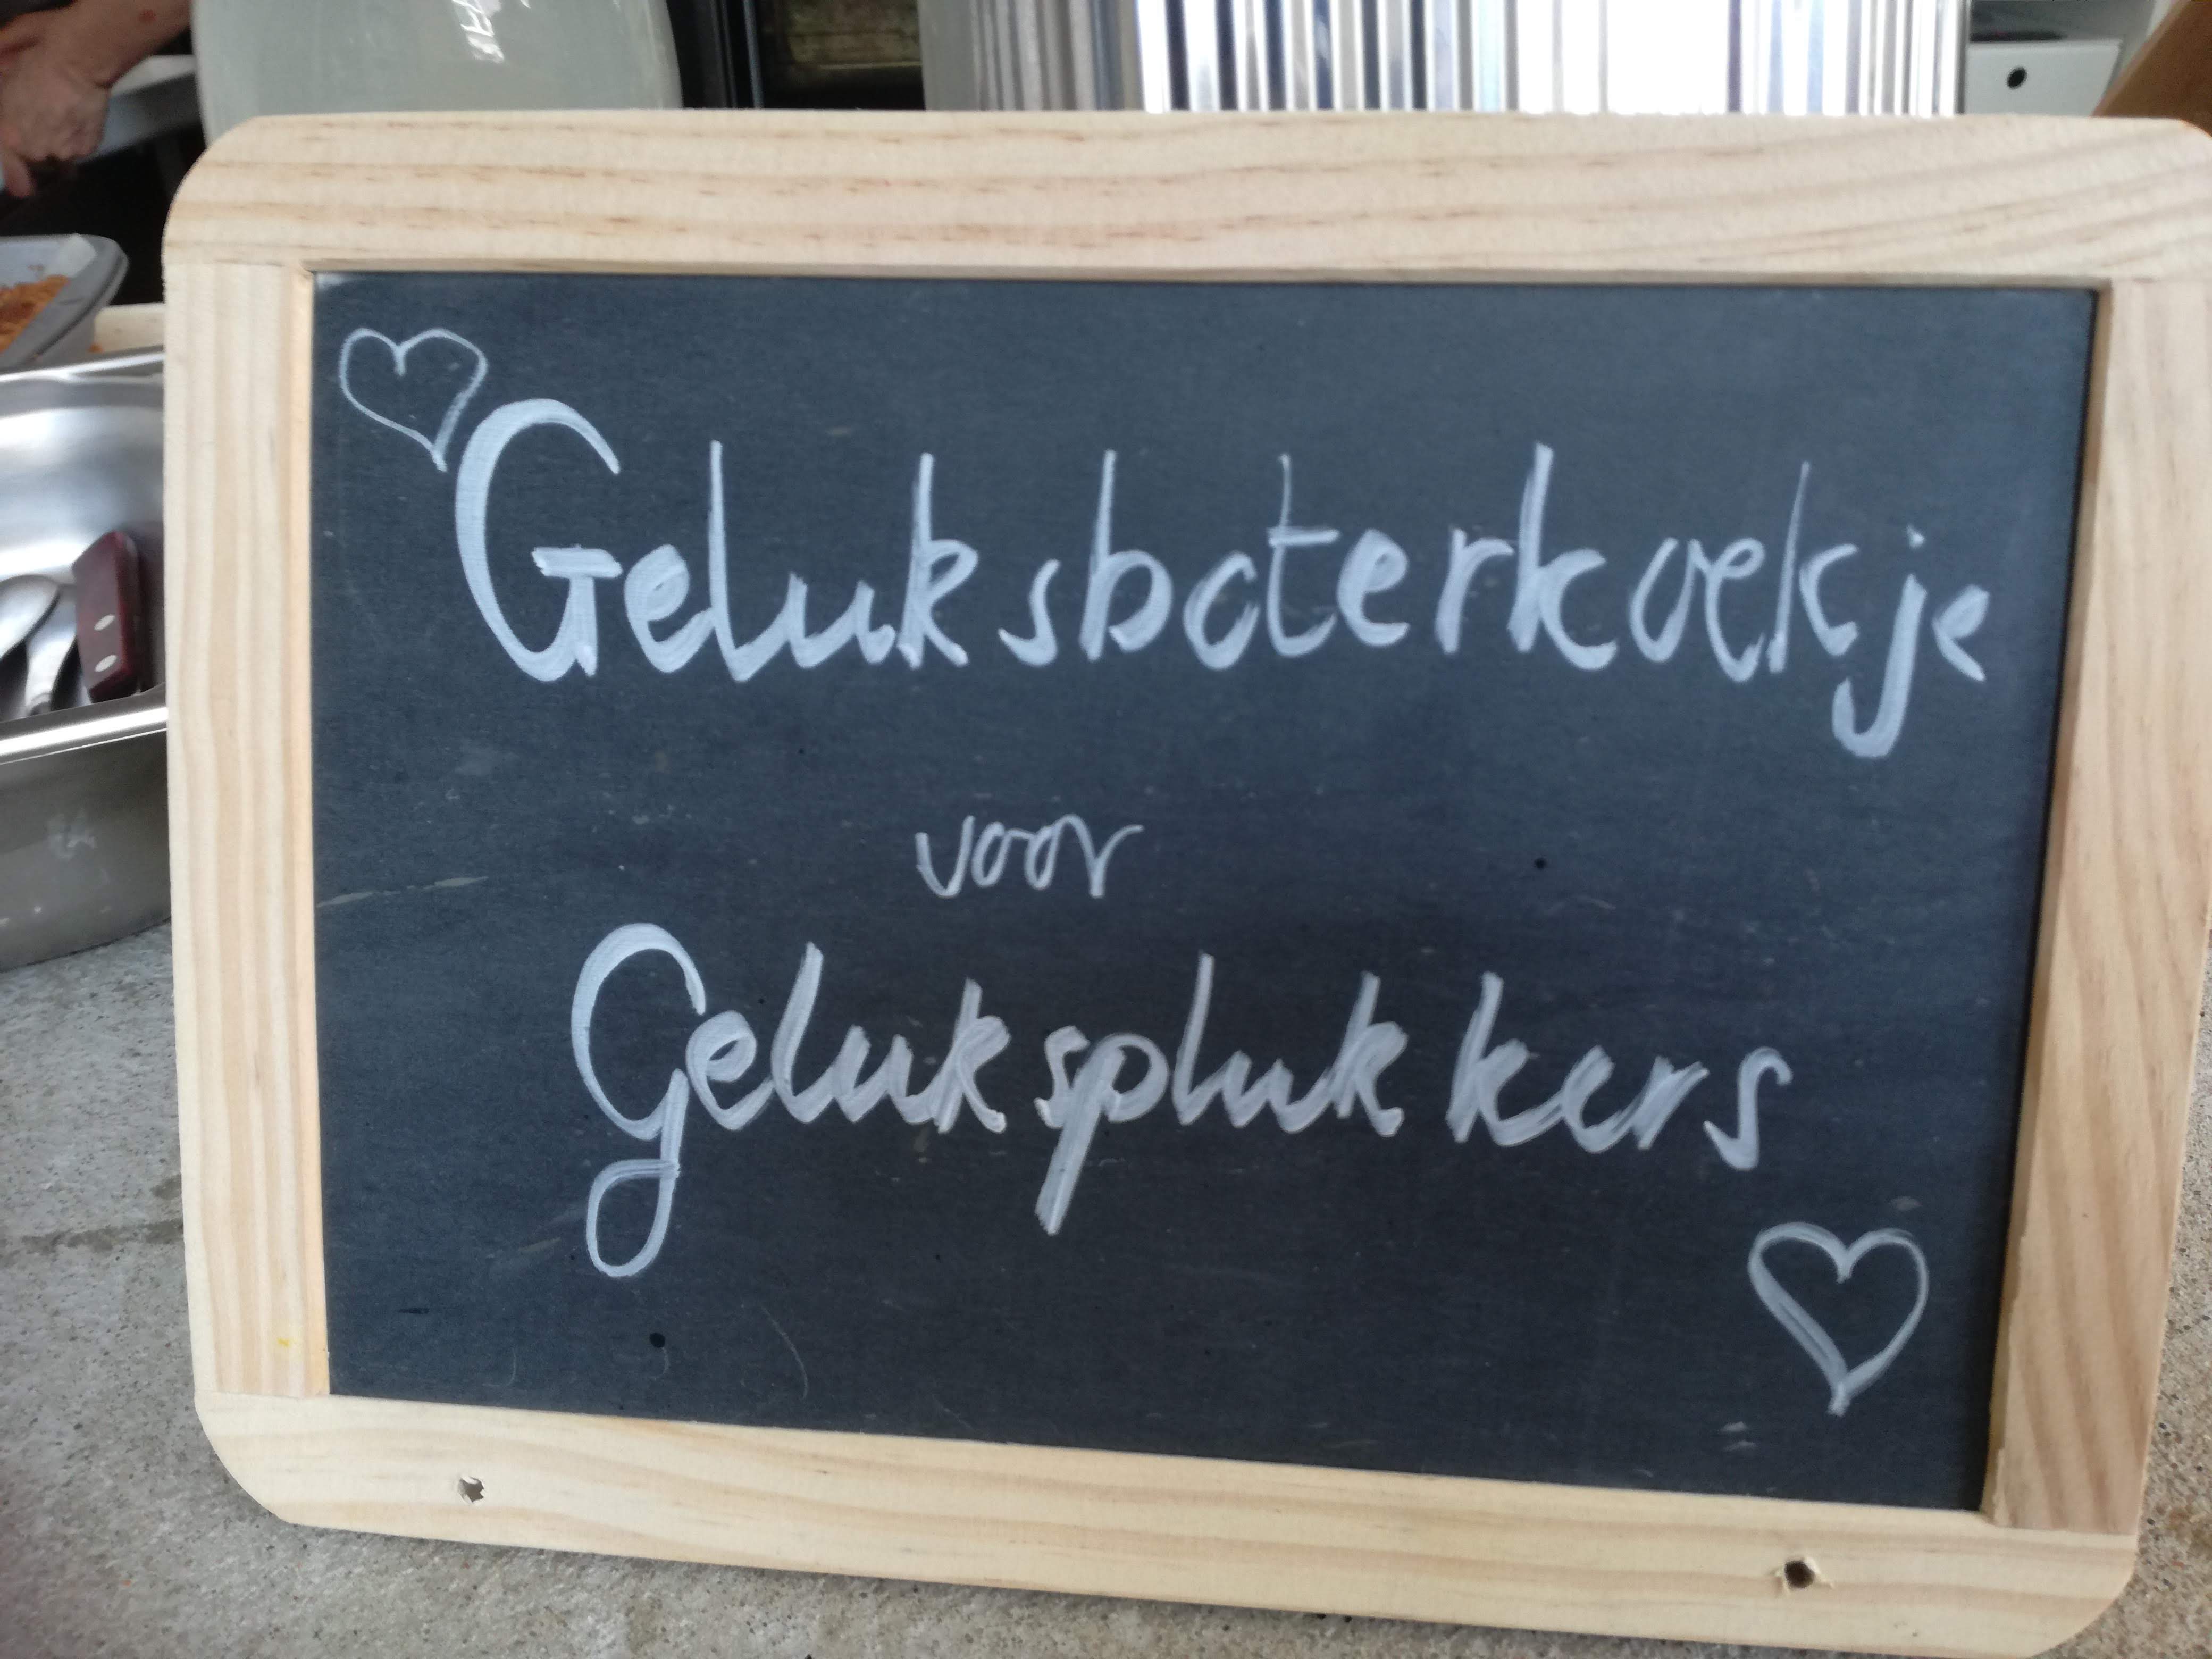 Geluksboterkoekje
voor
Geluksplukkers